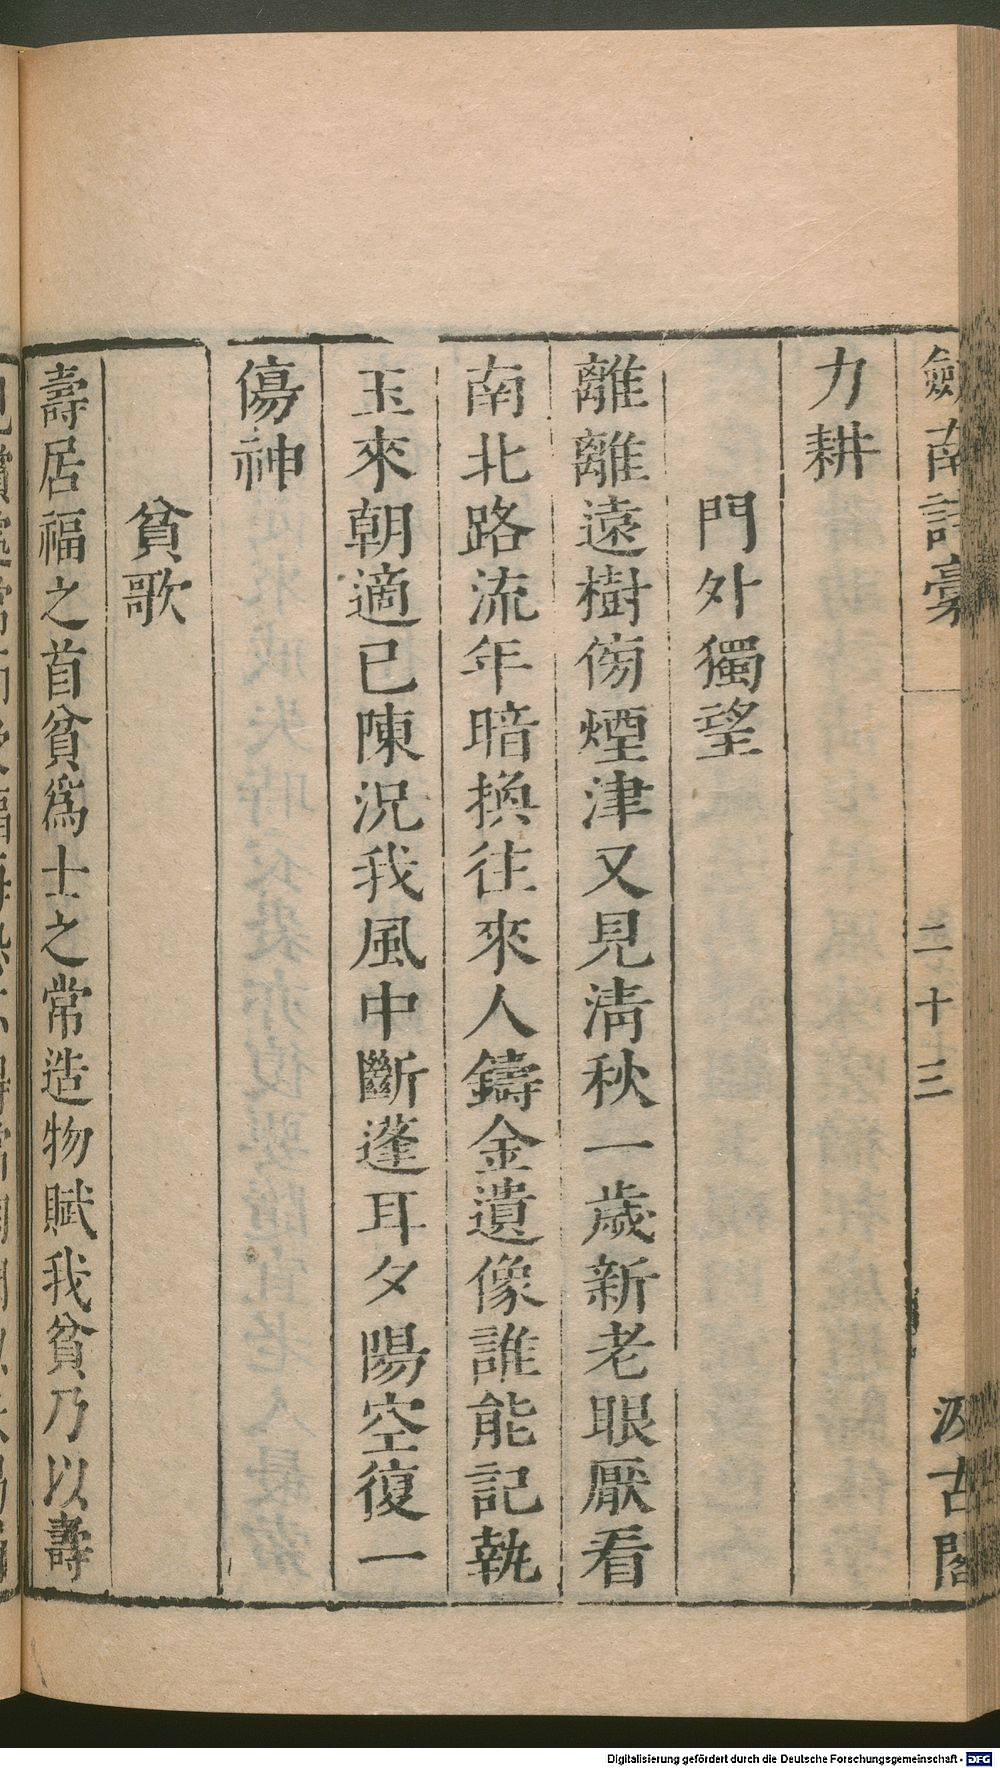 劒南詩稾
二十三
汲古閣
力耕
門外獨望
離離遠樹傍煙津又見淸秋一歲新老眼厭看
南北路流年暗換往來人鑄金遺像誰能記執
玉來朝適已陳況我風中斷蓬耳夕陽空復一
傷神
貧歌
壽居福之首貧爲士之常造物賦我貧乃以壽
Digitalisierung gefördert durch die Deutsche Forschungsgemeinschaft - DFG